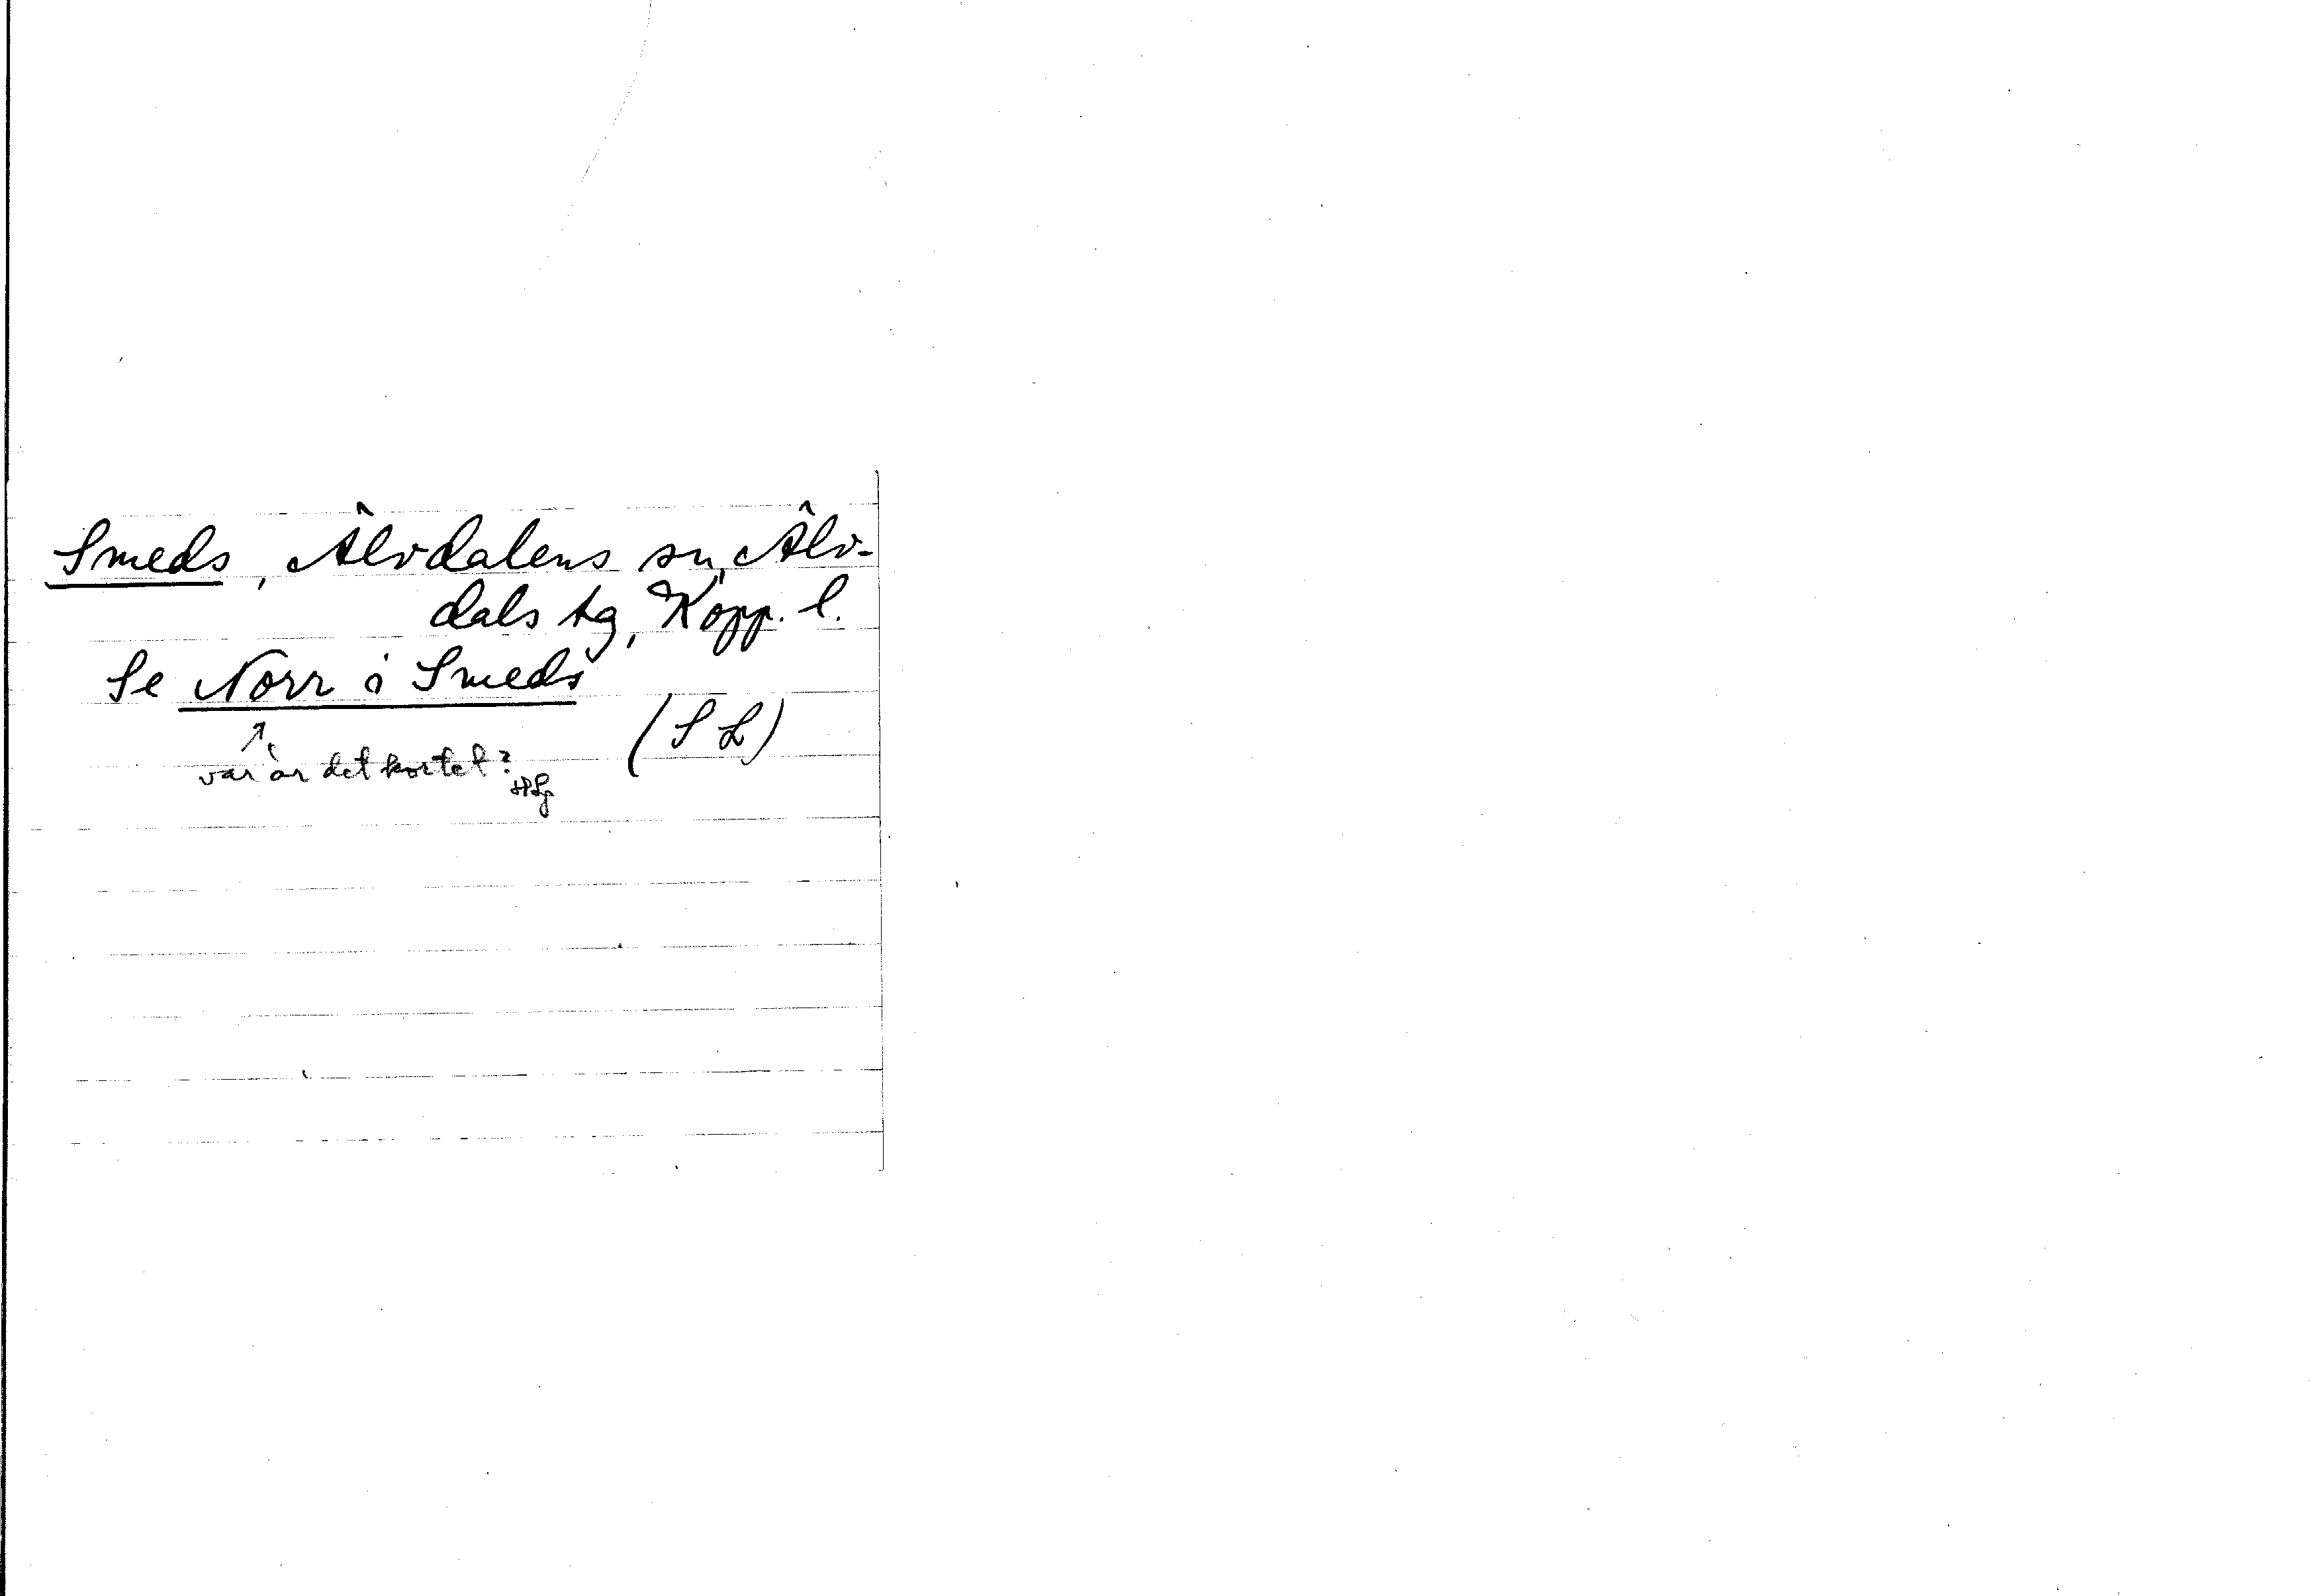 Smeds, Älvdalens sn, Älv-
dals tg, Kopp. l.
Se Norr å Smeds
(S L)
↑
var är det kortet?